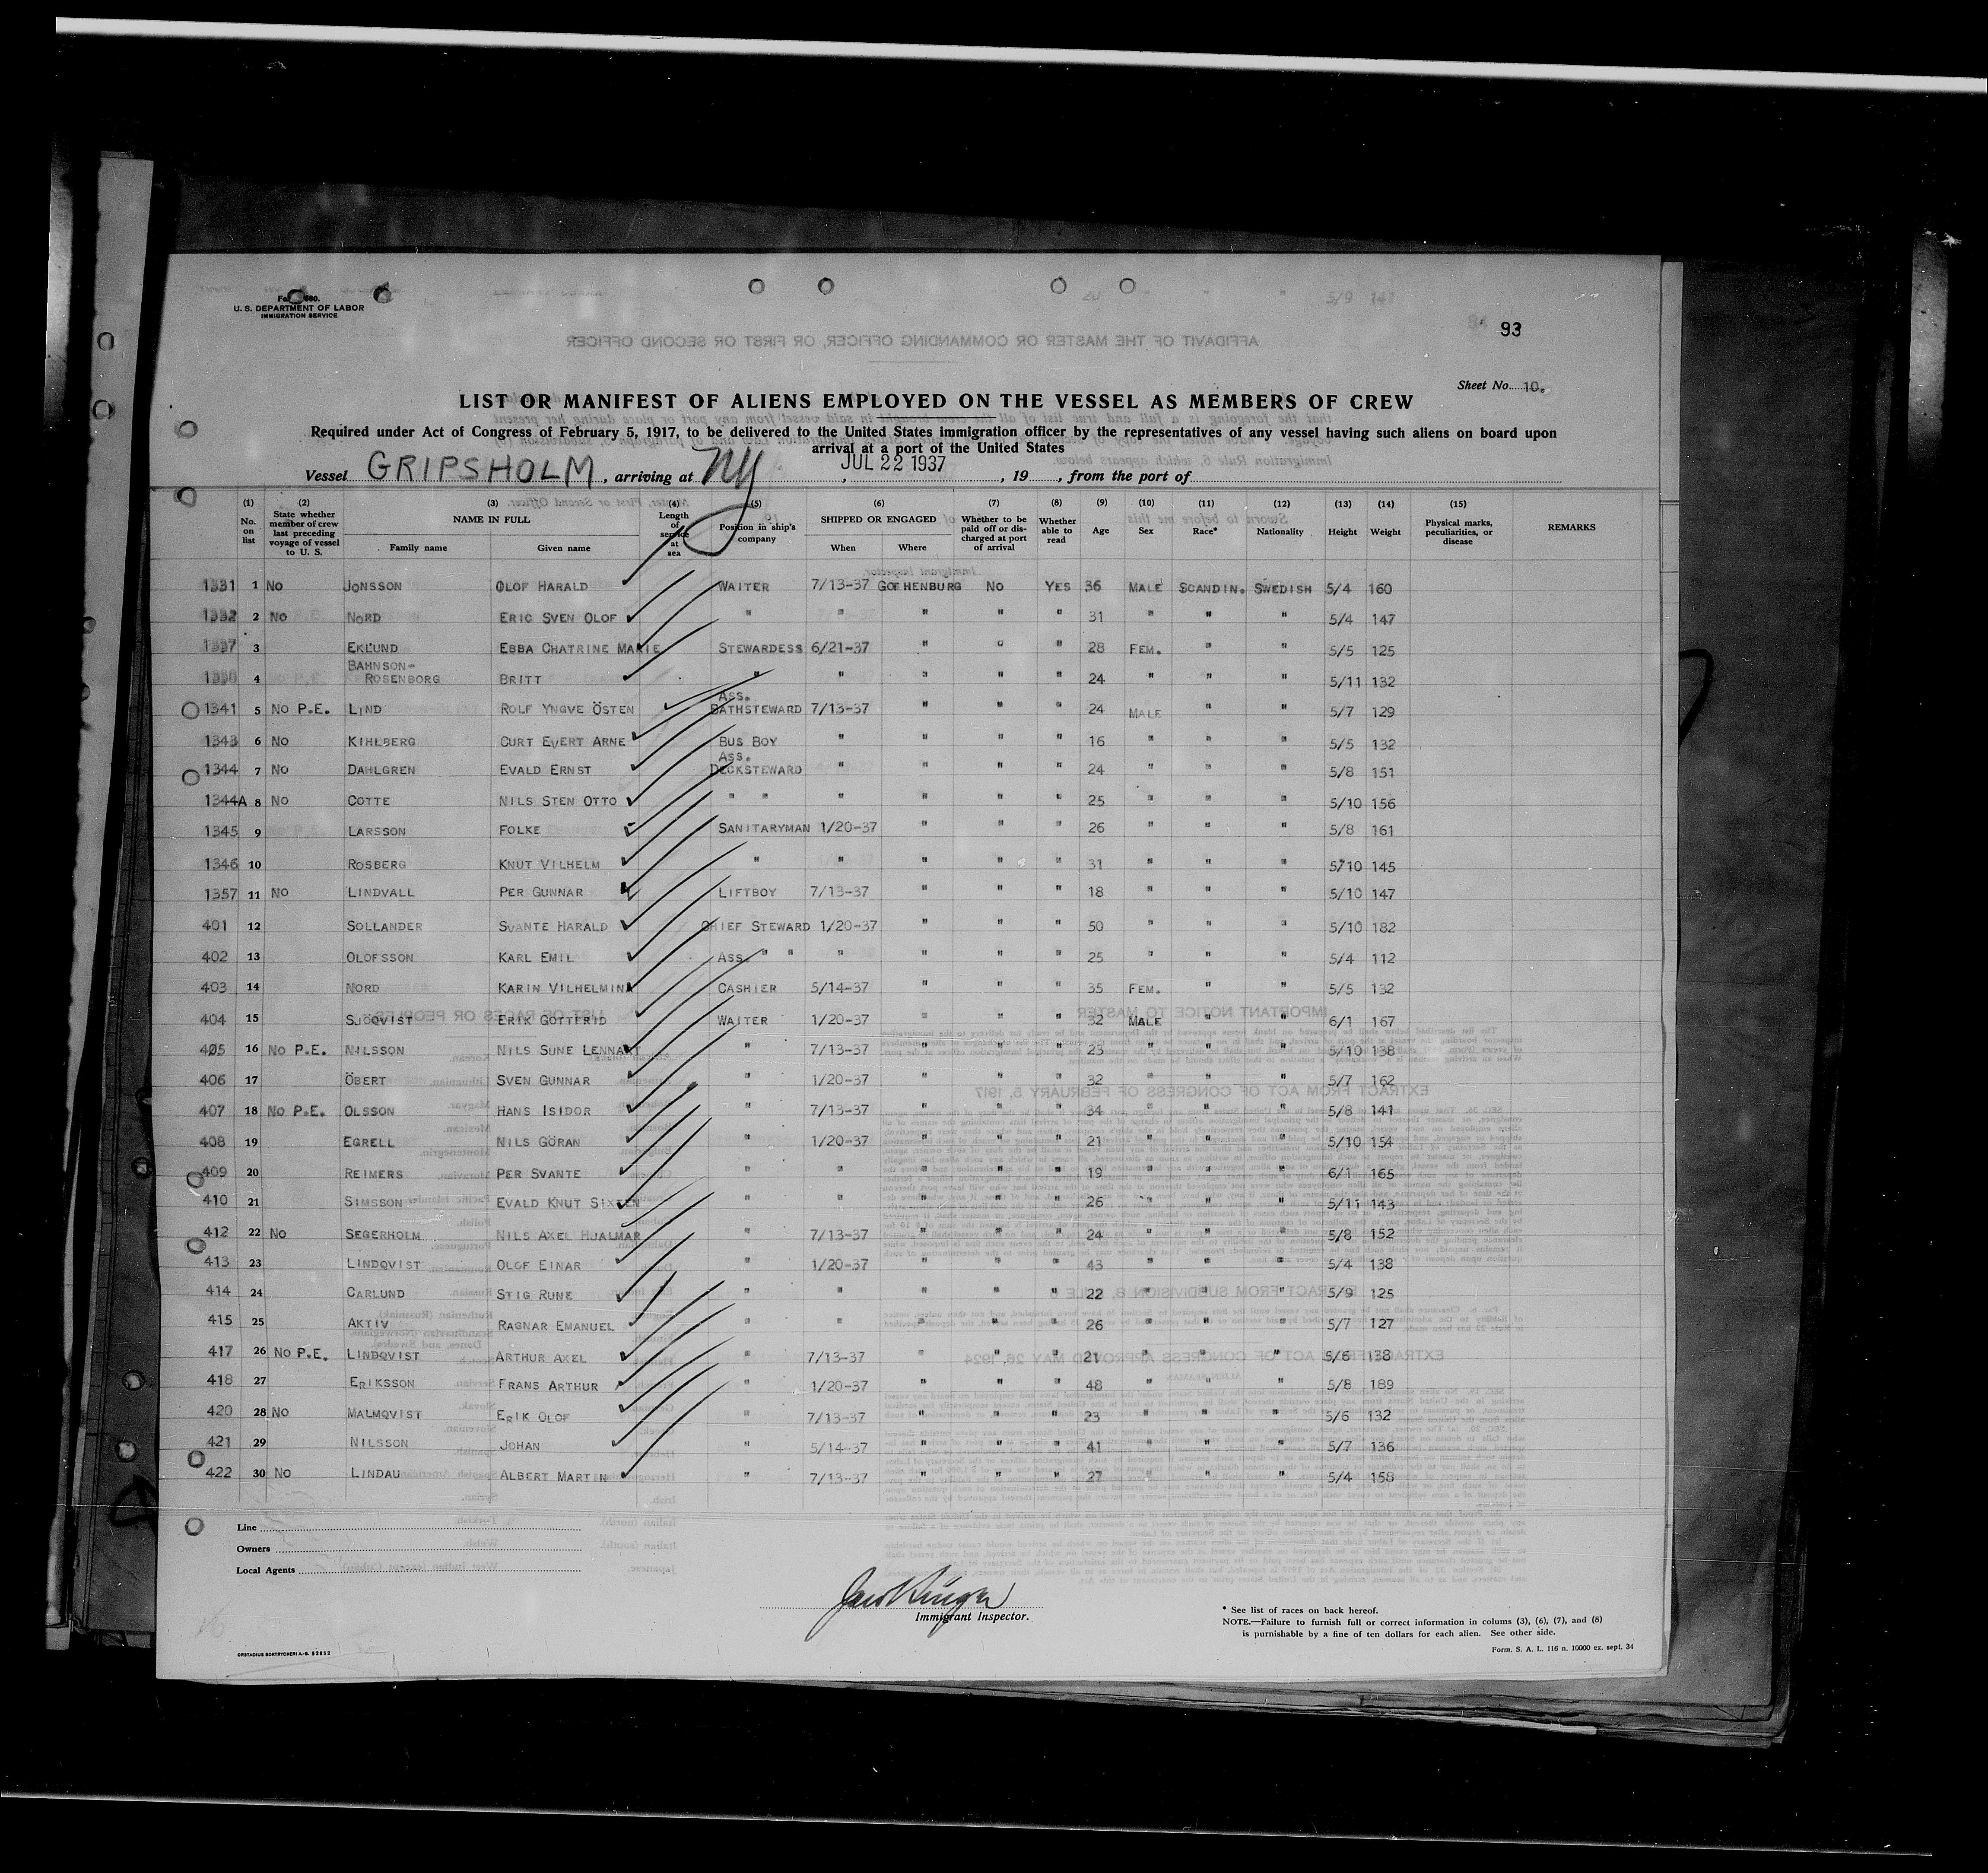 U. S. DEPARTMENT OF LABOR
IMMIGRATION SERVICE
93
Sheet No. 10.
LIST OR MANIFEST OF ALIENS EMPLOYED ON THE VESSEL AS MEMBERS OF CREW
Required under Act of Congress of February 5, 1917, to be delivered to the United States immigration officer by the representatives of any vessel having such aliens on board upon
arrival at a port of the United States
Vessel GRIPSHOLM, arriving at NY, JUL 22 1937, 19 , from the port of
(1) No. on list (2) State whether member of crew last preceding voyage of vessel to U. S. (3) NAME IN FULL Family name Given name (4) Length of service at sea (5) Position in ship's company (6) SHIPPED OR ENGAGED When Where (7) Whether to be paid off or discharged at port of arrival (8) Whether able to read (9) Age (10) Sex (11) Race* (12) Nationality (13) Height (14) Weight (15) Physical marks, peculiarities, or disease REMARKS
1331 1 NO JONSSON OLOF HARALD WAITER 7/13-37 GOTHENBURG NO YES 36 MALE SCANDIN. SWEDISH 5/4 160
1332 2 NO NORD ERIC SVEN OLOF " " " " " 31 " " " 5/4 147
1337 3 EKLUND EBBA CHATRINE MARIE STEWARDESS 6/21-37 " " " 28 FEM. " " 5/5 125
4 BAHNSON-ROSENBORG BRITT " " " " " 24 " " " 5/11 132
1341 5 NO P.E. LIND ROLF YNGVE ÖSTEN ASS. BATHSTEWARD 7/13-37 " " " 24 MALE " " 5/7 129
1343 6 NO KIHLBERG CURT EVERT ARNE BUS BOY " " " " 16 " " " 5/5 132
1344 7 NO DAHLGREN EVALD ERNST ASS. DECKSTEWARD " " " " 24 " " " 5/8 151
1344A 8 NO COTTE NILS STEN OTTO " " " " " " 25 " " " 5/10 156
1345 9 LARSSON FOLKE SANITARYMAN 1/20-37 " " " 26 " " " 5/8 161
1346 10 ROSBERG KNUT VILHELM " " " " " 31 " " " 5/10 145
1357 11 NO LINDVALL PER GUNNAR LIFTBOY 7/13-37 " " " 18 " " " 5/10 147
401 12 SOLLANDER SVANTE HARALD CHIEF STEWARD 1/20-37 " " " 50 " " " 5/10 182
402 13 OLOFSSON KARL EMIL ASS. " " " " " " 25 " " " 5/4 112
403 14 NORD KARIN VILHELMINA CASHIER 5/14-37 " " " 35 FEM. " " 5/5 132
404 15 SJÖQVIST ERIK GOTTFRID WAITER 1/20-37 " " " 32 MALE " " 6/1 167
405 16 NO P.E. NILSSON NILS SUNE LENNART " 7/13-37 " " " 23 " " " 5/10 138
406 17 ÖBERT SVEN GUNNAR " 1/20-37 " " " 32 " " " 5/7 162
407 18 NO P.E. OLSSON HANS ISIDOR " 7/13-37 " " " 34 " " " 5/8 141
408 19 EGRELL NILS GÖRAN " 1/20-37 " " " 21 " " " 5/10 154
409 20 REIMERS PER SVANTE " " " " " 19 " " " 6/1 165
410 21 SIMSSON EVALD KNUT SIXTEN " " " " " 26 " " " 5/11 143
412 22 NO SEGERHOLM NILS AXEL HJALMAR " 7/13-37 " " " 24 " " " 5/8 152
413 23 LINDQVIST OLOF EINAR " 1/20-37 " " " 43 " " " 5/4 138
414 24 CARLUND STIG RUNE " " " " " 22 " " " 5/9 125
415 25 AKTIV RAGNAR EMANUEL " " " " " 26 " " " 5/7 127
417 26 NO P.E. LINDQVIST ARTHUR AXEL " 7/13-37 " " " 21 " " " 5/6 138
418 27 ERIKSSON FRANS ARTHUR " 1/20-37 " " " 48 " " " 5/8 189
420 28 NO MALMQVIST ERIK OLOF " 7/13-37 " " " 23 " " " 5/6 132
421 29 NILSSON JOHAN " 5/14-37 " " " 41 " " " 5/7 136
422 30 NO LINDAU ALBERT MARTIN " 7/13-37 " " " 27 " " " 5/4 158
Line
Owners
Local Agents
Immigrant Inspector.
* See list of races on back hereof.
NOTE.—Failure to furnish full or correct information in colums (3), (6), (7), and (8)
is purnishable by a fine of ten dollars for each alien. See other side.
Form. S. A. L. 116 n. 10000 ex. sept. 34